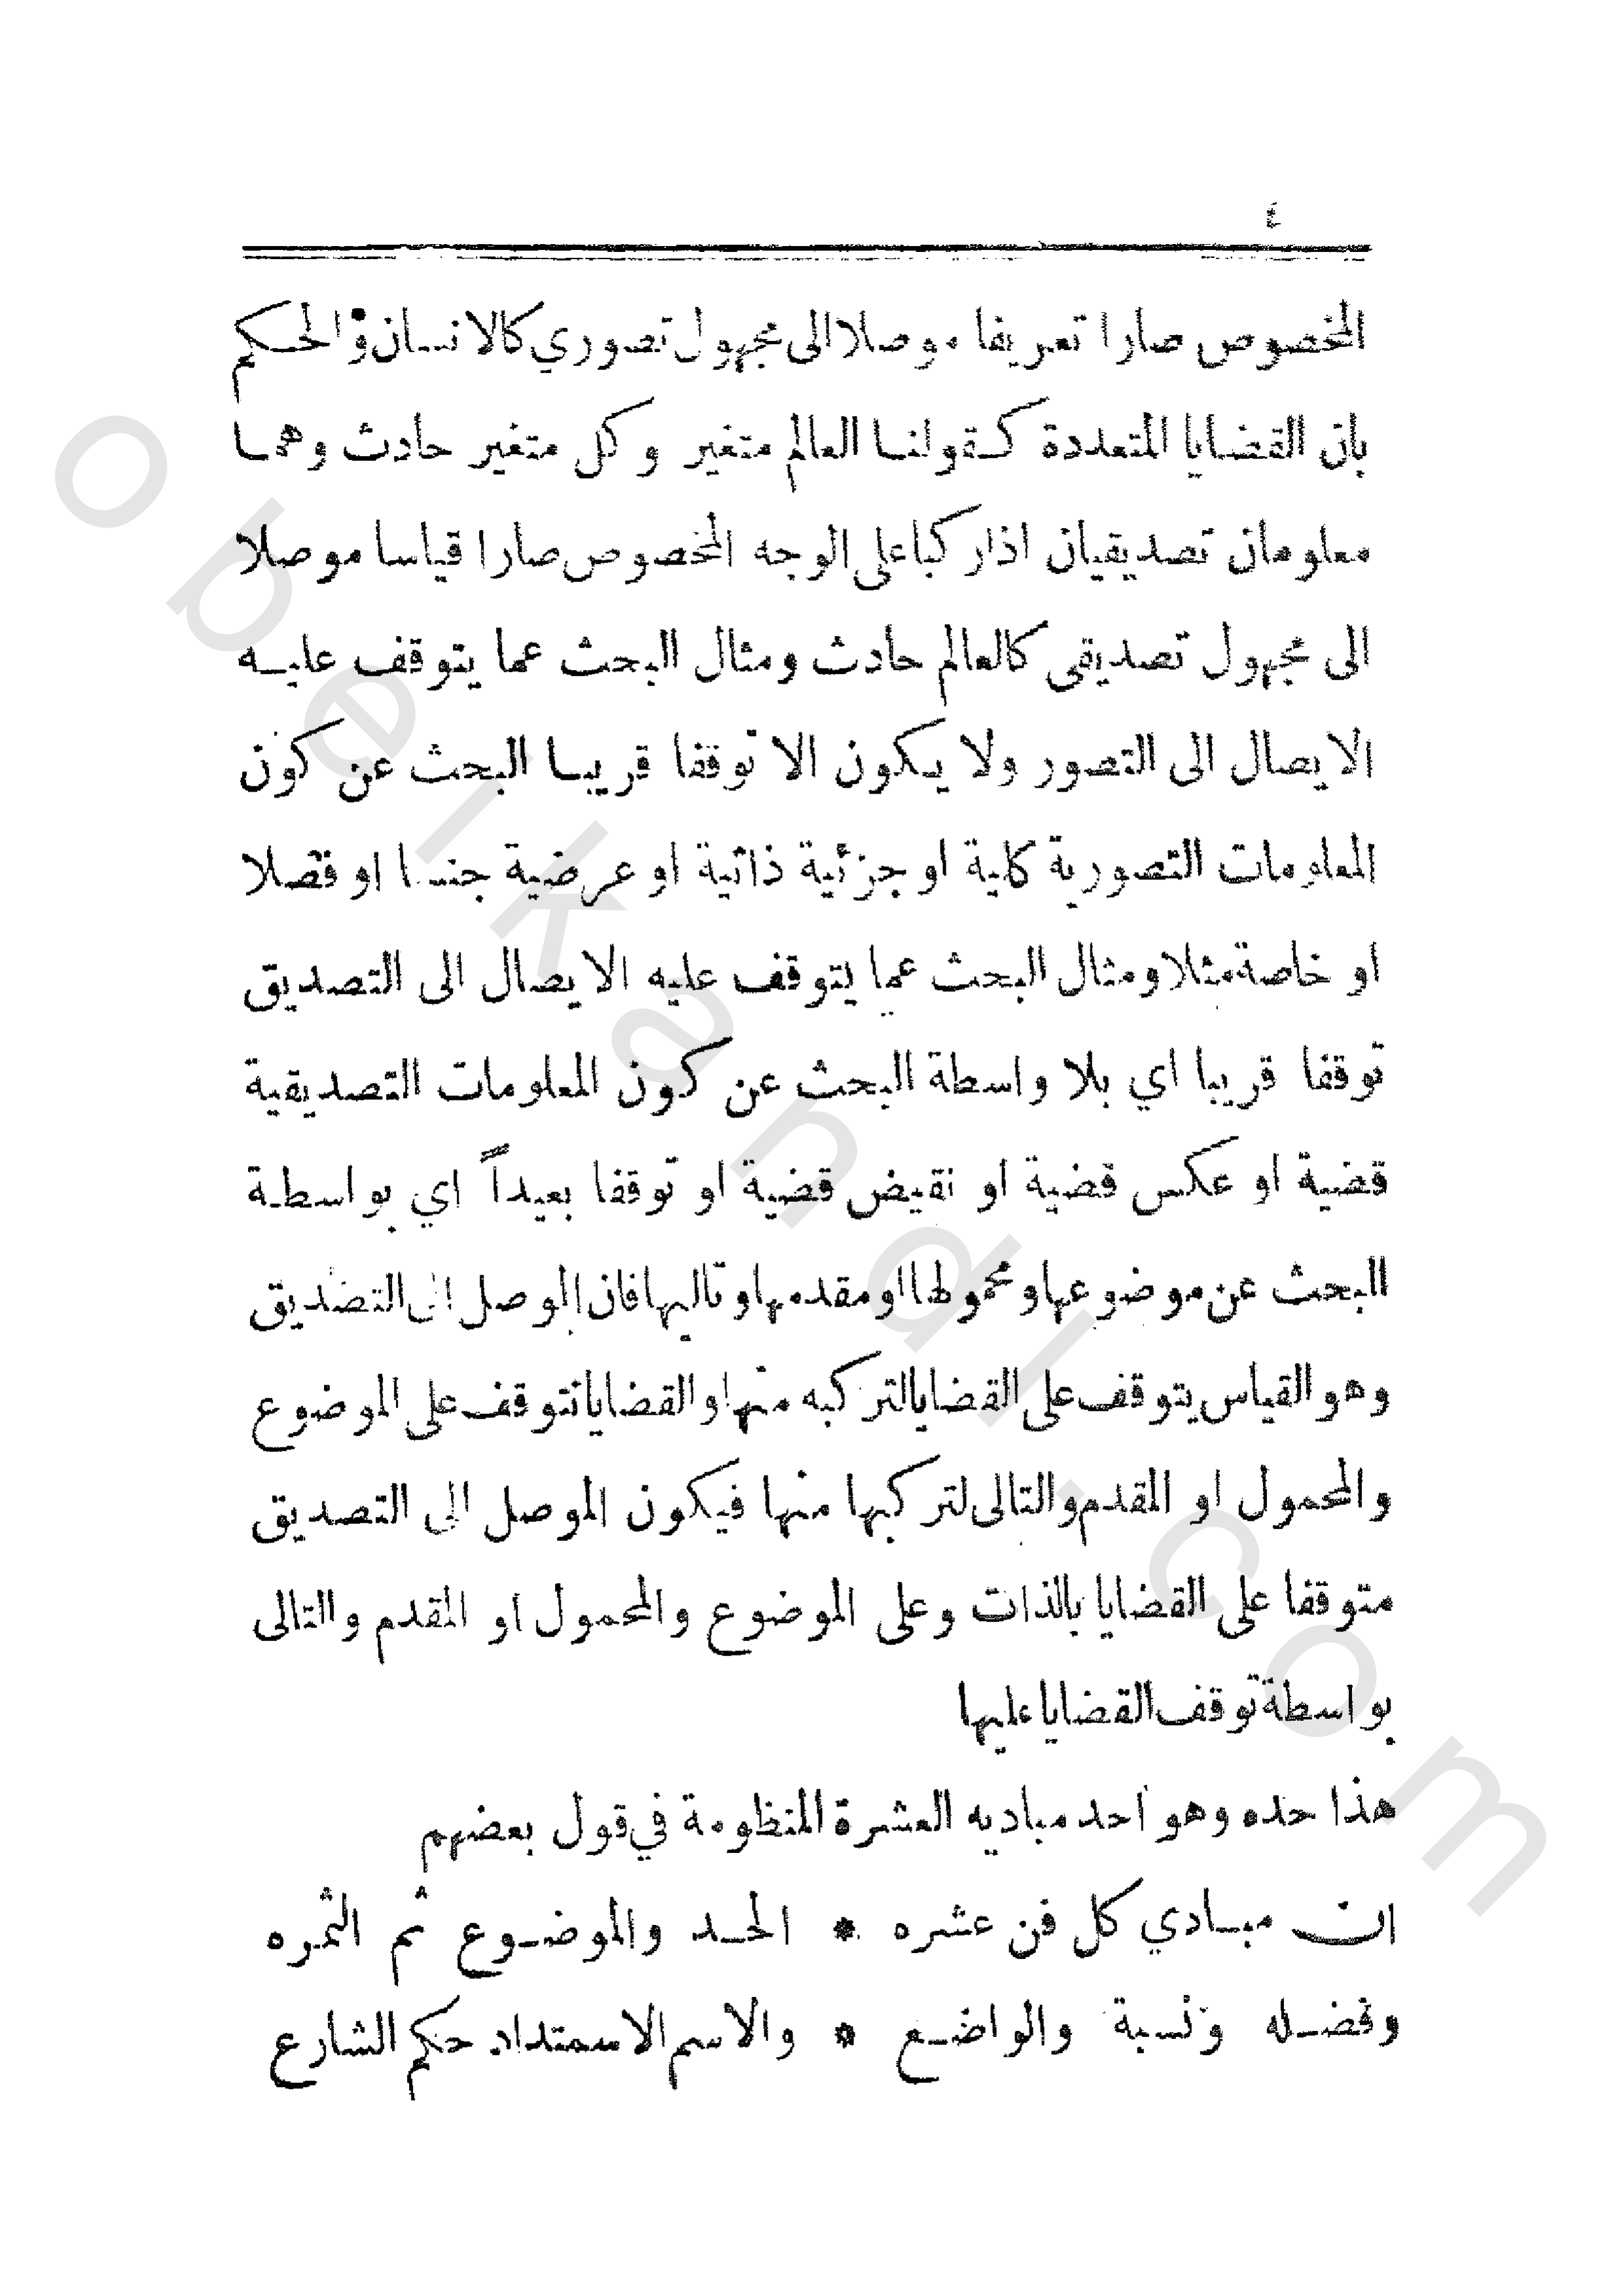 ٤
المخصوص صارا تعريفا موصلا الى مجهول تصوري كالانسان والحكم
بان القضايا المتعددة كقولنا العالم متغير وكل متغير حادث وهما
معلومان تصديقيان اذار كبا على الوجه المخصوص صارا قياسا موصلا
الى مجهول تصديقى كالعالم حادث ومثال البحث عما يتوقف عليه
الايصال الى التصور ولا يكون الا توقفا قريبا البحث عن كون
المعلومات التصورية كلية او جزئية ذاتية او عرضية جنسا او فصلا
او خاصة مثلا ومثال البحث عما يتوقف عليه الايصال الى التصديق
توقفا قريبا اي بلا واسطة البحث عن كون المعلومات التصديقية
قضية او عكس قضية او نقيض قضية او توقفا بعيداً اي بواسطة
البحث عن موضوعها ومحمولها او مقدمها وتاليها فان الموصل الى التصديق
وهو القياس يتوقف على القضايا لتركبه منها والقضايا تتوقف على الموضوع
والمحمول او المقدم والتالى لتركبها منها فيكون الموصل الى التصديق
متوقفا على القضايا بالذات وعلى الموضوع والمحمول او المقدم والتالى
بواسطة توقف القضايا عليها
هذا حده وهو احد مباديه العشرة المنظومة في قول بعضهم
ان مبادي كل فن عشره * الحد والموضوع ثم الثمره
وفضله ونسبة والواضع * والاسم الاستمداد حكم الشارع
obeikandl.com